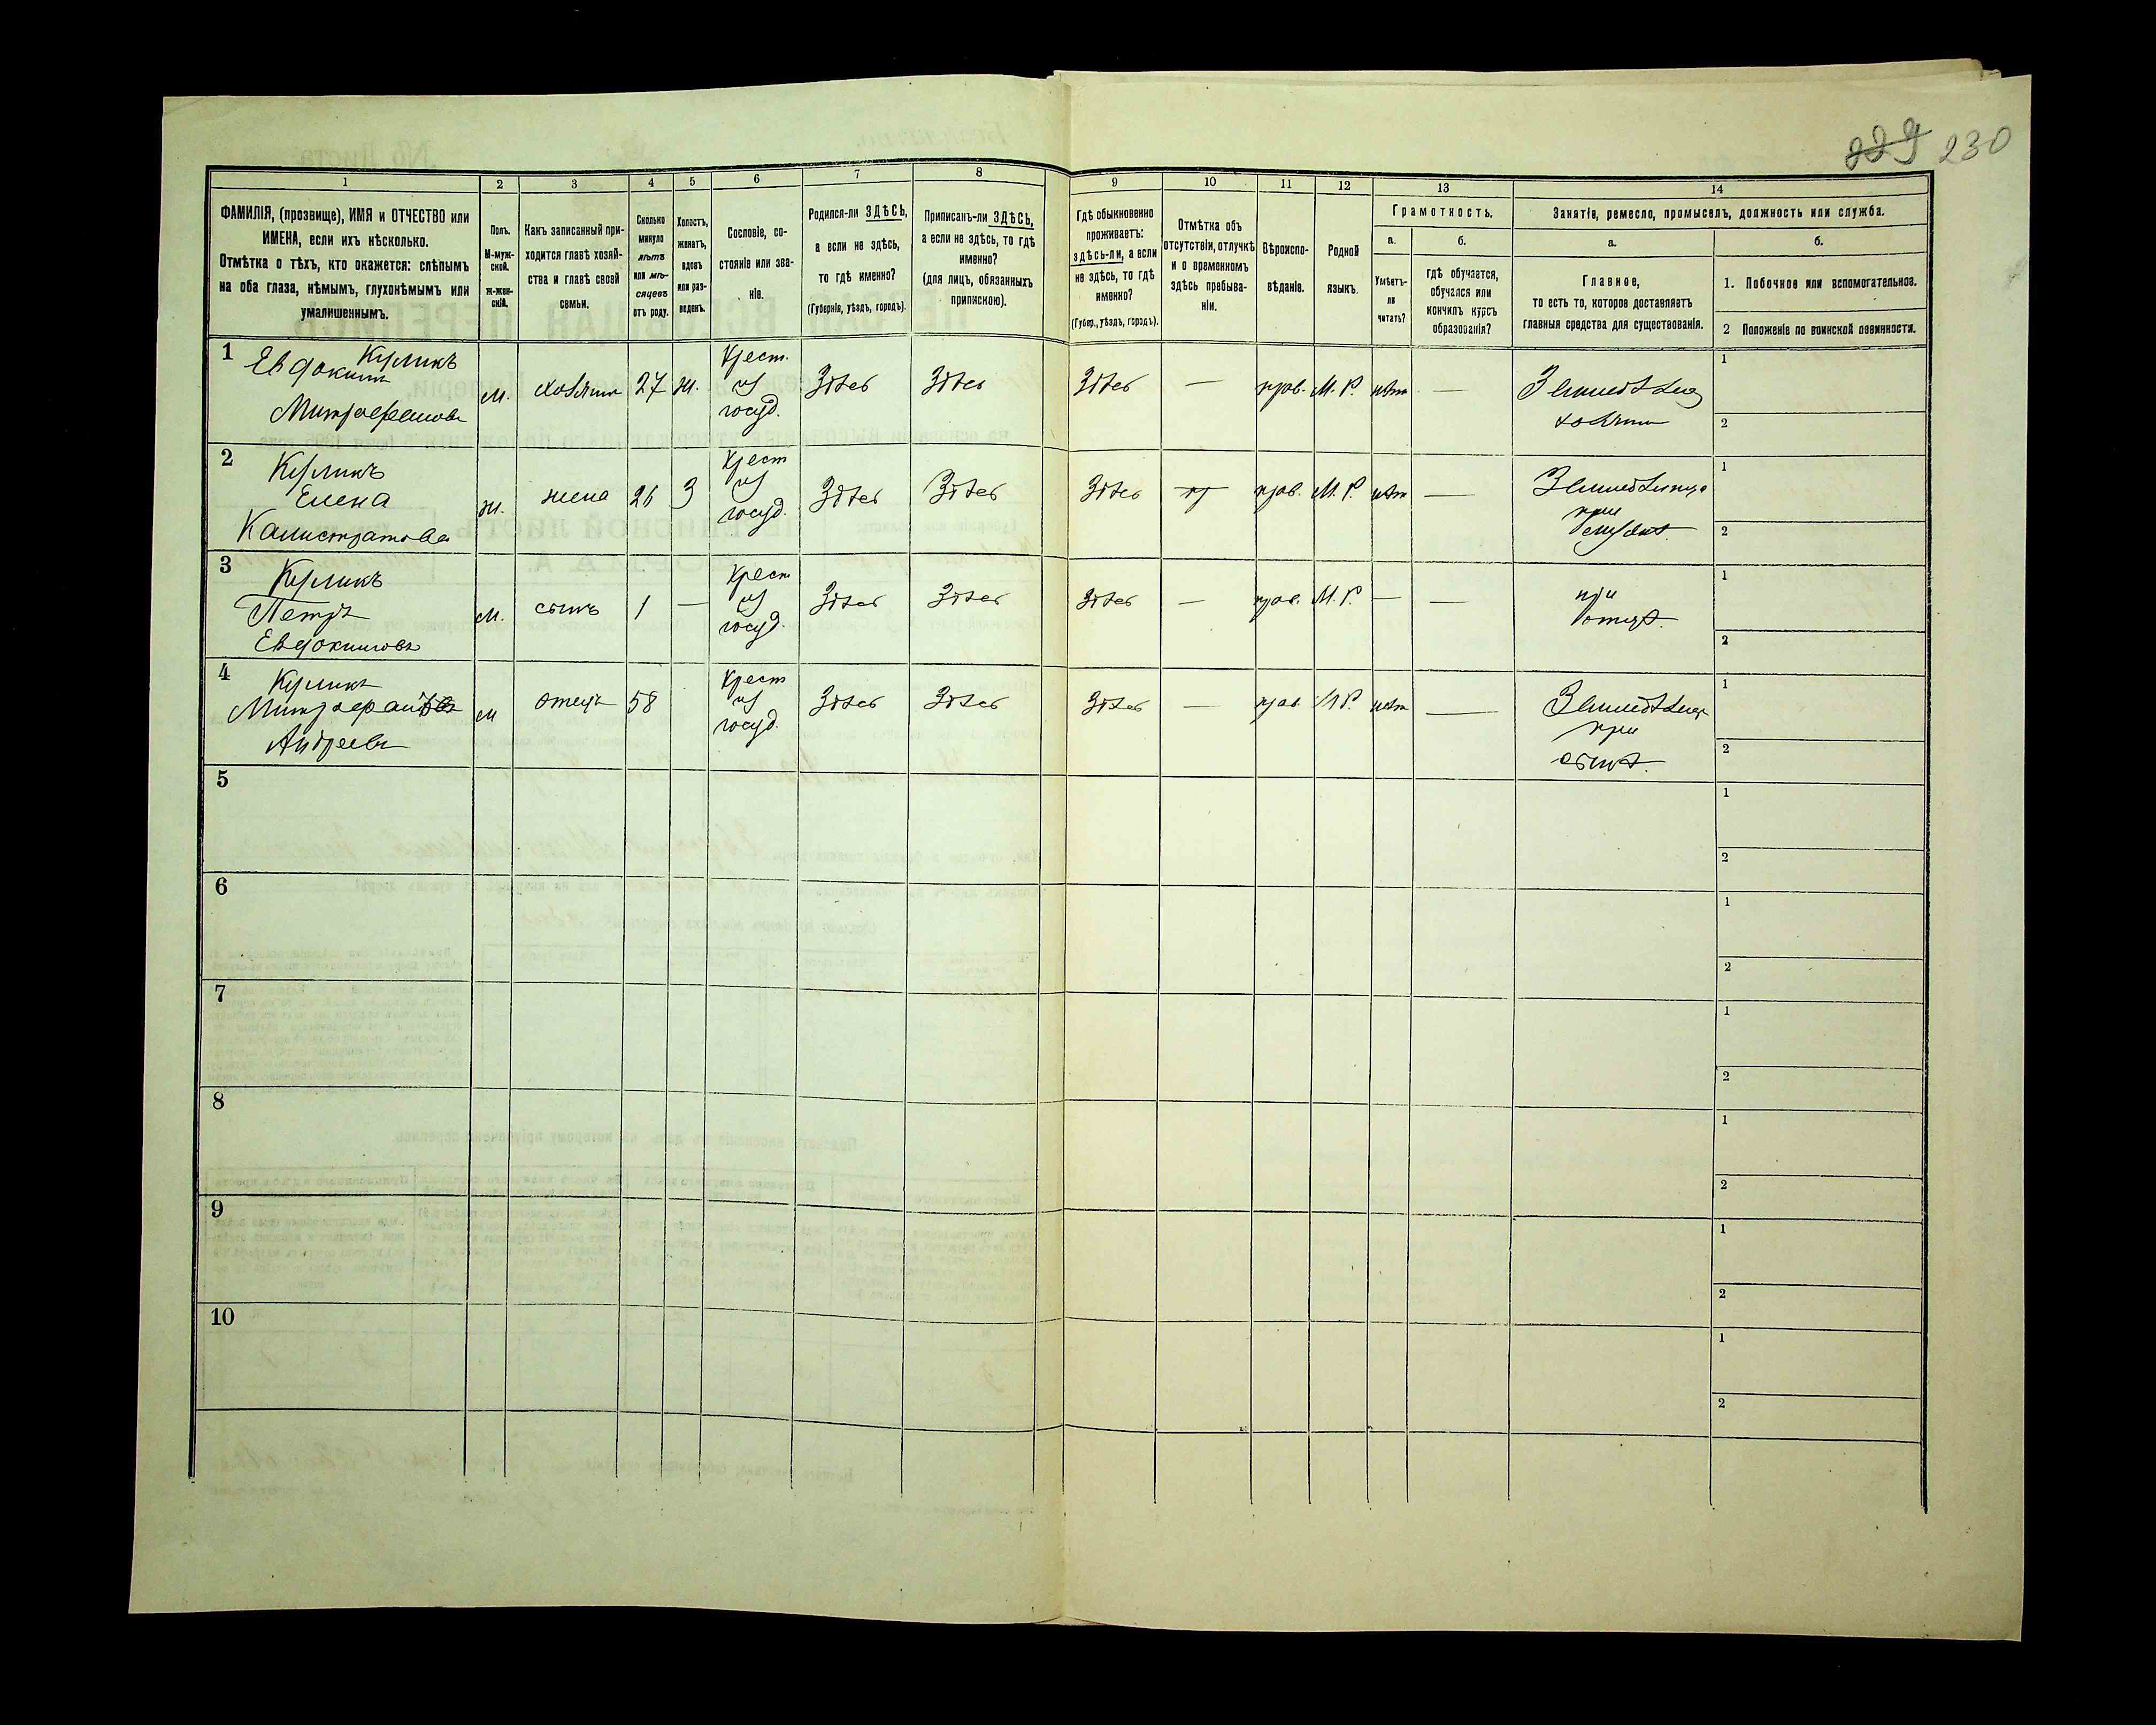 229 230
1 2 3 4 5 6 7 8 9 10 11 12 13 14
ФАМИЛІЯ, (прозвище), ИМЯ и ОТЧЕСТВО или
ИМЕНА, если ихъ нѣсколько.
Отмѣтка о тѣхъ, кто окажется: слѣпымъ
на оба глаза, нѣмымъ, глухонѣмымъ или
умалишеннымъ.
Полъ.
М-муж-
ской.
ж-жен-
скій.
Какъ записанный при-
ходится главѣ хозяй-
ства и главѣ своей
семьи.
Сколько
минуло
лѣтъ
или мѣ-
сяцевъ
отъ роду.
Холостъ,
женатъ,
вдовъ
или раз-
веденъ.
Сословіе, со-
стояніе или зва-
ніе.
Родился-ли ЗДѢСЬ,
а если не здѣсь,
то гдѣ именно?
(Губернія, уѣздъ, городъ).
Приписанъ-ли ЗДѢСЬ,
а если не здѣсь, то гдѣ
именно?
(для лицъ, обязанныхъ
припискою).
Гдѣ обыкновенно
проживаетъ:
здѣсь-ли, а если
не здѣсь, то гдѣ
именно?
(Губер., уѣздъ, городъ).
Отмѣтка объ
отсутствіи, отлучкѣ
и о временномъ
здѣсь пребыва-
ніи.
Вѣроиспо-
вѣданіе.
Родной
языкъ.
Грамотность.
а.
Умѣетъ-
ли
читать?
б.
гдѣ обучается,
обучался или
кончилъ курсъ
образованія?
Занятіе, ремесло, промыселъ, должность или служба.
а.
Главное,
то есть то, которое доставляетъ
главныя средства для существованія.
б.
1. Побочное или вспомогательное.
2 Положеніе по воинской повинности.
1
Куликъ
Евдокимъ
Митрофановъ
м. хозяинъ 27 ж.
Крест.
из
госуд.
Здѣсь Здѣсь Здѣсь — прав. М. Р. нѣт —
Земледѣлец
хозяин
1
2
2
Куликъ
Елена
Калистратова
ж. жена 26 З
Крест
из
госуд.
Здѣсь Здѣсь Здѣсь прав. М. Р. нѣт —
при
1
2
3
Куликъ
Петръ
Евдокимовъ
м. сынъ 1 —
Крест
из
госуд.
Здѣсь Здѣсь Здѣсь — прав. М. Р. — —
при
отцѣ.
1
2
4
Куликъ
Митрофанъ
Андреевъ
м отецъ 58
Крест
из
госуд.
Здѣсь Здѣсь Здѣсь — прав. М Р. нѣт —
Земледѣлец
при
сынѣ.
1
2
5
1
2
6
1
2
7
1
2
8
1
2
9
1
2
10
1
2